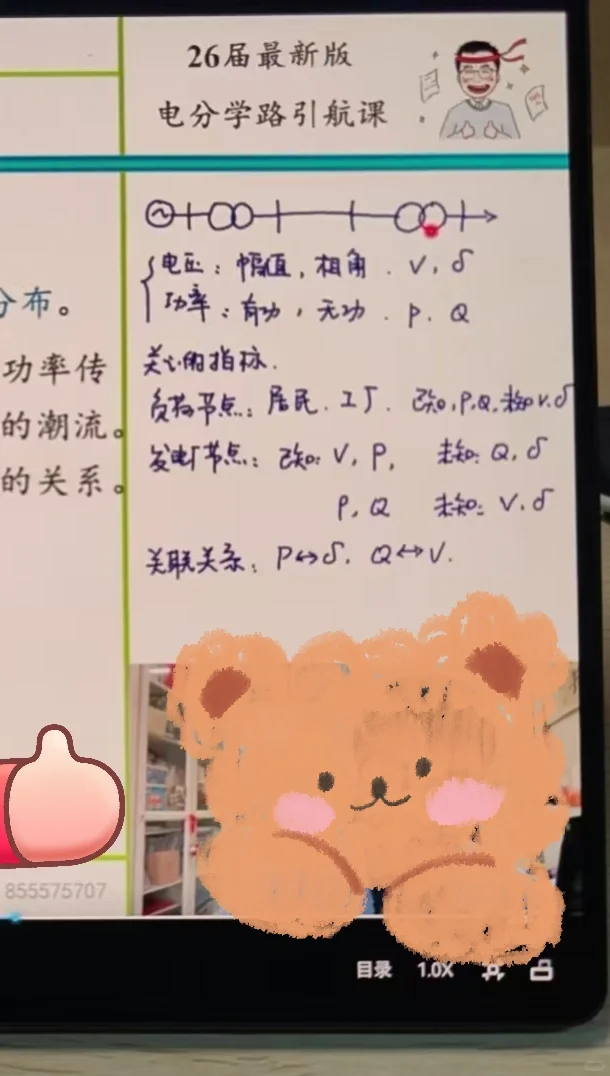 26届最新版
电分学路引航课
分布。
功率传
的潮流。
的关系。
电压：幅值，相角．V，δ
功率：有功，无功．P．Q
关心的指标．
负荷节点：居民．工厂．已知，P,Q,未知V.δ
发电厂节点：已知：V，P， 未知：Q，δ
P，Q 未知：V．δ
关联关系：P↔δ．Q↔V．
855575707
目录 1.0X